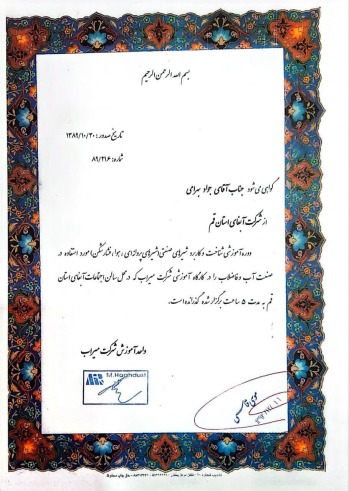 بسم الله الرحمن الرحیم
تاریخ صدور: ۱۳۸۹/۱۰/۲۰
شماره: ۸۹/۳۱۶
گواهی می شود جناب آقای جواد بهرامی
از شرکت آبفای استان قم
دوره آموزشی شناخت و کاربرد شیرهای صنعتی (شیرهای پروانه‌ای، هوا، فشارشکن) مورد استفاده در
صنعت آب و فاضلاب را در کارگاه آموزشی شرکت میراب که در محل سالن اجتماعات آبفای استان
قم به مدت ۵ ساعت برگزار شده گذرانده است.
واحد آموزش شرکت میراب
MIR M.Haghdust